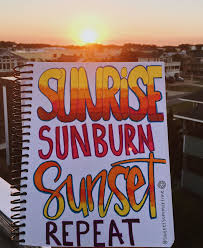 SUNRISE
SUNBURN
Sunset
REPEAT